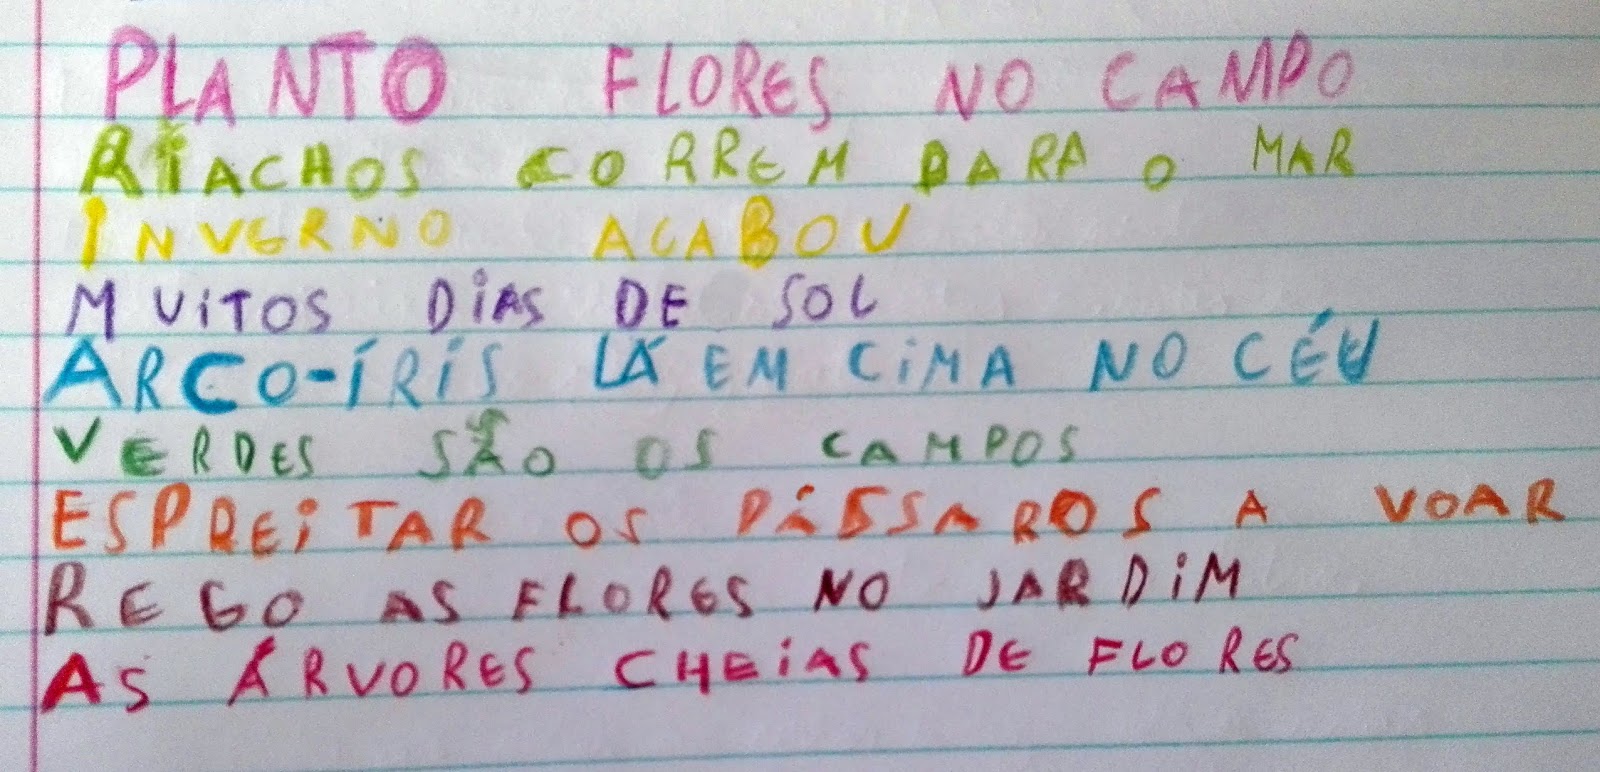 PLANTO FLORES NO CAMPO
RIACHOS CORREM PARA O MAR
INVERNO ACABOU
MUiTOS DiAS DE SOL
ARCO-ÍRÍS LÁ EM CiMA NO CÉU
VERDES SÃO OS CAMPOS
ESPREiTAR OS PÁSSAROS A VOAR
REGO AS FLORES NO JARDiM
AS ÁRVORES CHEiAS DE FLORES